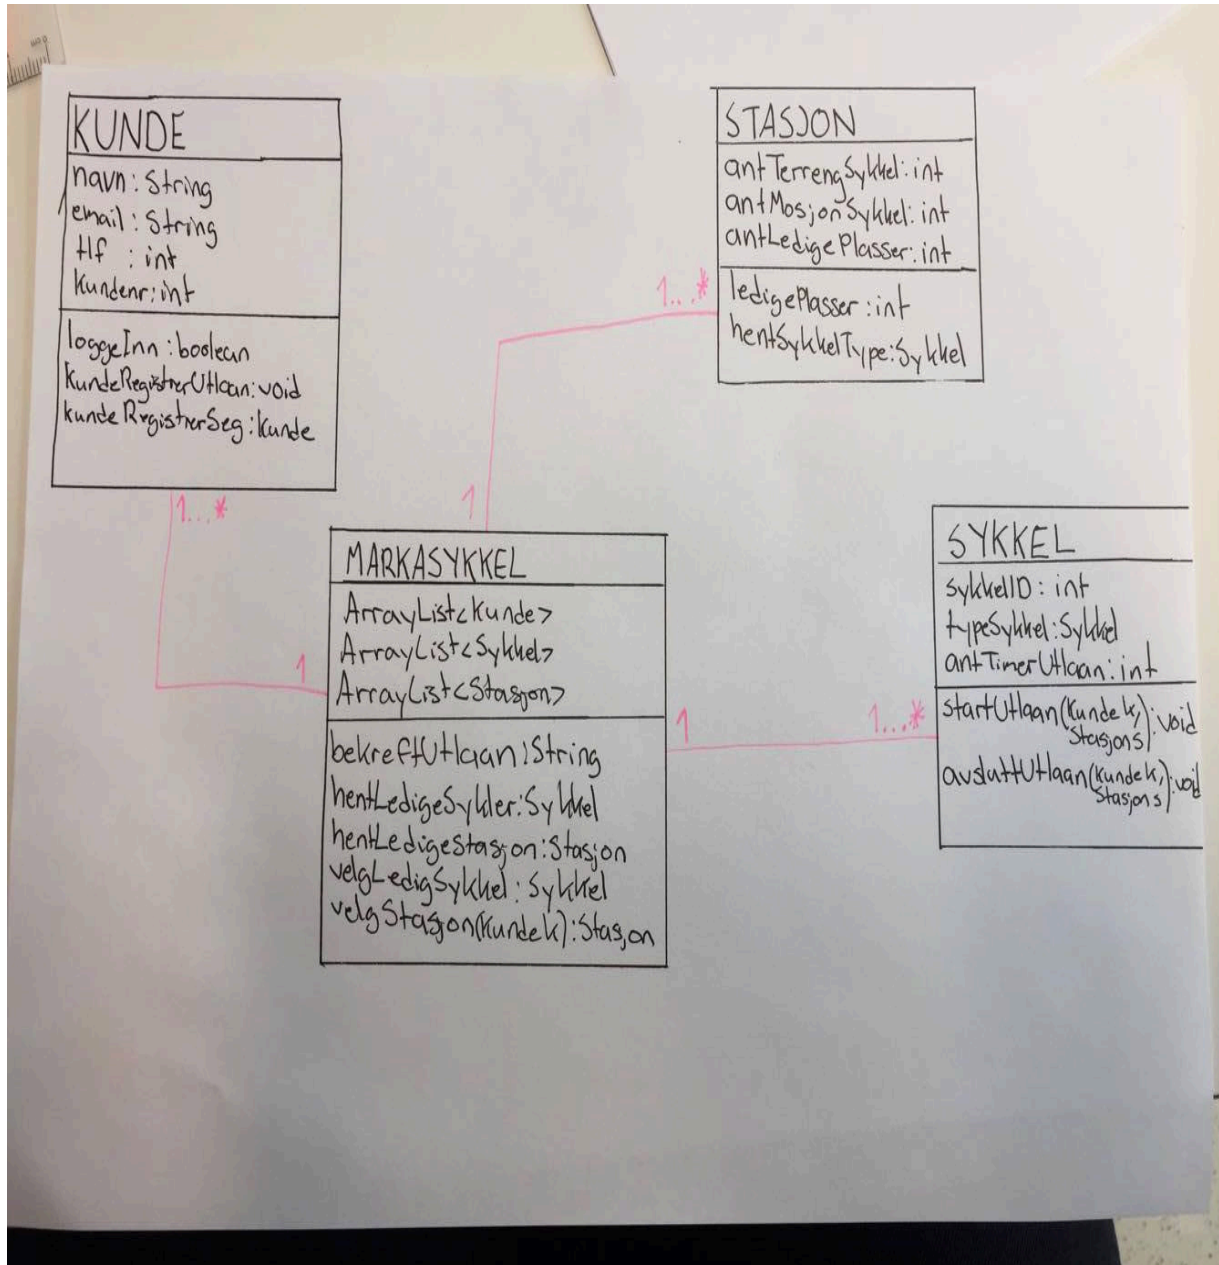 KUNDE
navn: String
email: String
tlf : int
Kundenr: int
loggeInn : boolean
KundeRegistrerUtlaan: void
kunde RegistrerSeg: Kunde
STASJON
antTerrengSykkel: int
antMosjonSykkel: int
antLedigePlasser: int
ledigePlasser: int
hentSykkelType: Sykkel
1...*
1
1...*
1
MARKASYKKEL
ArrayList<Kunde>
ArrayList<Sykkel>
ArrayList<Stasjon>
bekreftUtlaan: String
hentLedigeSykler: Sykkel
hentLedigeStasjon: Stasjon
velgLedigSykkel: Sykkel
velgStasjon(Kunde k): Stasjon
1
1...*
SYKKEL
sykkelID: int
typeSykkel: Sykkel
antTimerUtlaan: int
startUtlaan(Kunde k,
Stasjon s): void
avsluttUtlaan(Kunde k,
Stasjon s): void